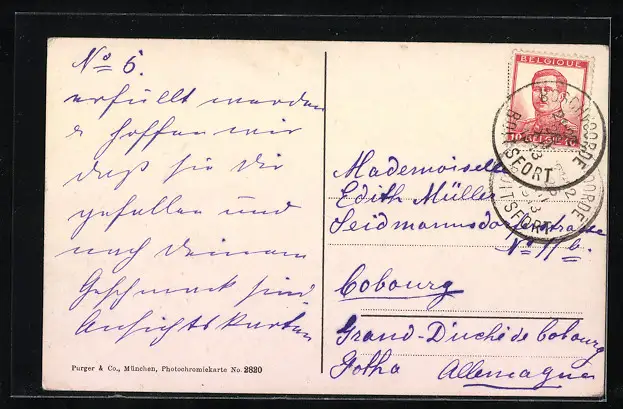 No 6.
erfüllt worden
& hoffen wir
daß sie dir
gefallen und
nach deinem
Geschmack sind.
Ansichtskarten
Purger & Co., München, Photochromiekarte No. 2820
BELGIQUE
BOSCHVOORDE
BOITSFORT
BOITSFORT
Mademoiselle
Edith Müller
Seidmannsdorferstrasse
No 116.
Cobourg
Grand-Duché de Cobourg
Gotha Allemagne